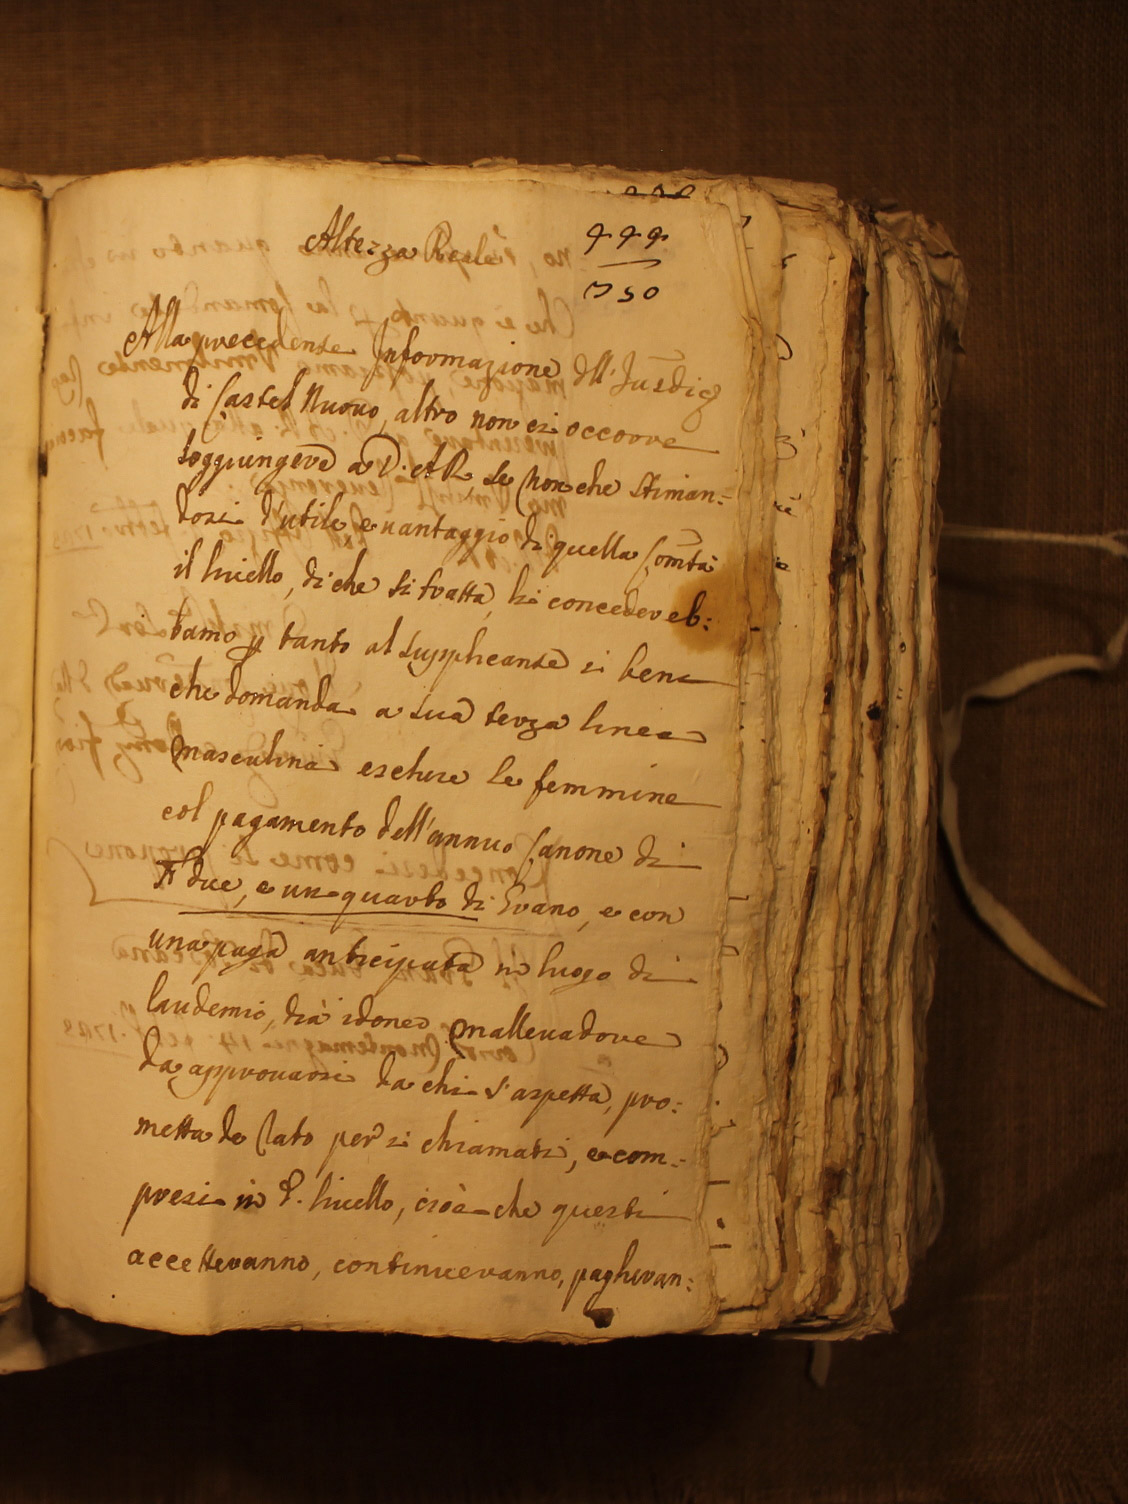 999
750
Altezza Reale
Alla precedente Informazione dll' Jusdic.
di Castel Nuovo, altro non ci occorre
soggiungere a V. A. R. se non che stiman=
dosi d'utile, e vantaggio di quella Comtà
il livello, di che si tratta, li concedereb:
bamo p tanto al supplicante i beni
che domanda a sua terza linea
Masculina escluse le femmine
col pagamento dell'annuo Canone di
due, e un quarto di Grano, e con
una paga anticipata in luogo di
laudemio, dia idoneo Mallevadore
da approvarsi da chi s'aspetta, pro:
metta de Rato per i chiamati, e com=
presi in d. livello, cioè che questi
accetteranno, continueranno, pagheran=